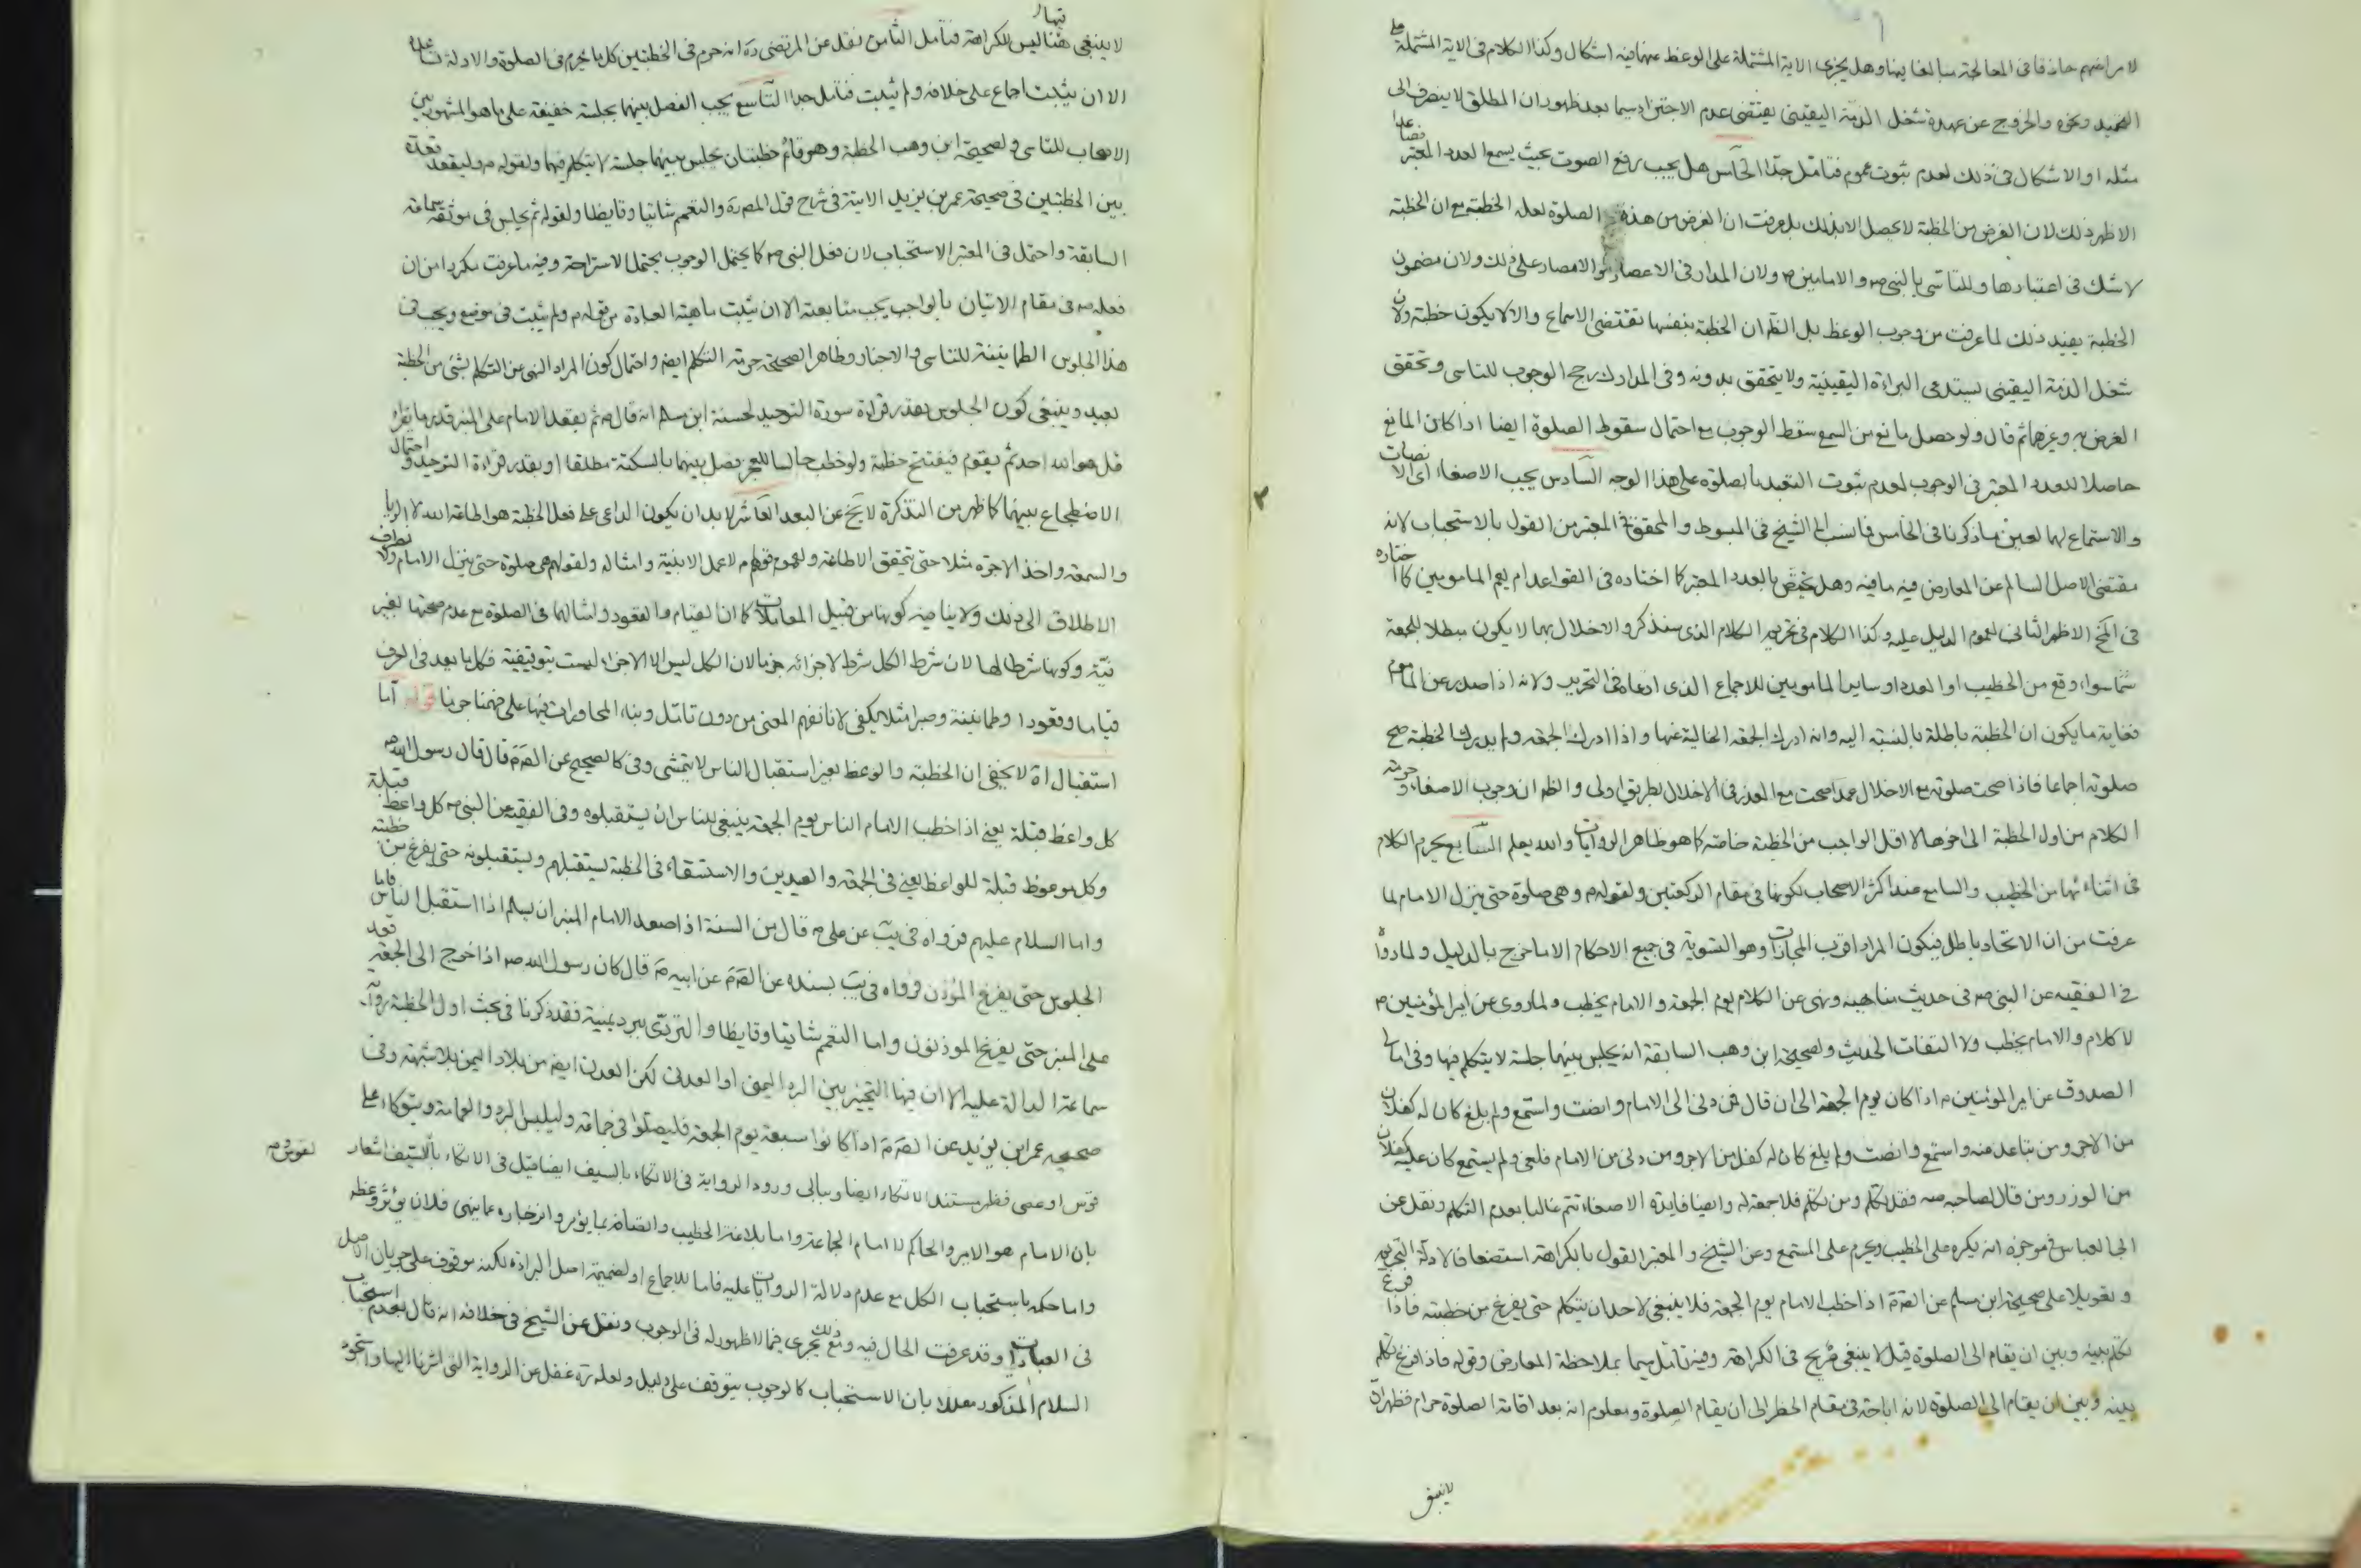 لامراضهم حاذقا فى المعالجة مبالغا فيها وهل يجزى الاية المشتملة على الوعظ عنها فيه اشكال وكذا الكلام فى الاية المشتملة على
التحميد ونحوه والخروج عن عهدة شغل الذمة اليقينى يقتضى عدم الاجتزاء سيما بعد ظهور ان المطلق لا ينصرف الى
مثله او الاشكال فى ذلك لعدم ثبوت عموم فتامل جدا الخامس هل يجب رفع الصوت بحيث يسمع العدد المعتبر فصاعدا
الاظهر ذلك لان الغرض من الخطبة لا يحصل الا بذلك بل عرفت ان الغرض من هذه الصلوة لعله الخطبة مع ان الخطبة
لا شك فى اعتبارها وللتاسى بالنبى ص والامامين م ولان المدار فى الاعصار والامصار على ذلك ولان مضمون
الخطبة يفيد ذلك لما عرفت من وجوب الوعظ بل الظ ان الخطبة بنفسها تقتضى الاسماع والا لا يكون خطبة ولان
شغل الذمة اليقينى يستدعى البراءة اليقينية ولا يتحقق بدونه وفى المدارك رجح الوجوب للتاسى وتحقق
الغرض به وغيرهما ثم قال ولو حصل مانع من السمع سقط الوجوب مع احتمال سقوط الصلوة ايضا اذا كان المانع
حاصلا للعدد المعتبر فى الوجوب لعدم ثبوت التعبد بالصلوة على هذا الوجه السادس يجب الاصغاء اى الانصات
والاستماع لها لعين ما ذكرنا فى الخامس فما نسب الى الشيخ فى المبسوط والمحقق فى المعتبر من القول بالاستحباب لانه
مقتضى الاصل السالم عن المعارض فيه ما فيه وهل يختص بالعدد المعتبر كما اختاره فى القواعد ام يعم المامومين كما اختاره
فى الاظهر الثانى لعموم الدليل عليه وكذا الكلام فى تحريم الكلام الذى سنذكر والاخلال بهما لا يكون مبطلا للجمعة
سواء وقع من الخطيب او العدد او ساير المامومين للاجماع الذى ادعاه فى التحرير ولانه اذا صدر عن الماموم
فغاية ما يكون ان الخطبة باطلة بالنسبة اليه وانه ادرك الجمعة الخالية عنها واذا ادرك الجمعة ولم يدرك الخطبة صح
صلوته اجماعا فاذا صحت صلوته مع الاخلال عمدا صحت مع العذر فى الاخلال بطريق اولى والظ ان وجوب الاصغاء وحرمة
الكلام من اول الخطبة الى اخرها لا اقل الواجب من الخطبة خاصة كما هو ظاهر الروايات والله يعلم السابع يحرم الكلام
فى اثنائها من الخطيب والسامع عند اكثر الاصحاب لكونها فى مقام الركعتين ولقوله م وهى صلوة حتى ينزل الامام لما
عرفت من ان الاتحاد باطل فيكون المراد اقرب المجازات وهو التسوية فى جميع الاحكام الا ما خرج بالدليل ولما رواه
فى الفقيه عن النبى ص فى حديث مناهيه ونهى عن الكلام يوم الجمعة والامام يخطب ولما روى عن امير المؤمنين م
لا كلام والامام يخطب ولا التفات الحديث ولصحيحة ابن وهب السابقة انه يجلس بينهما جلسة لا يتكلم فيها وفى امالى
الصدوق عن امير المؤمنين م اذا كان يوم الجمعة الى ان قال فمن دنى الى الامام وانصت واستمع ولم يلغ كان له كفلان
من الاجر ومن تباعد عنه واستمع وانصت ولم يلغ كان له كفل من الاجر ومن دنى من الامام فلغى ولم يستمع كان عليه كفلان
من الوزر ومن قال لصاحبه صه فقد تكلم ومن تكلم فلا جمعة له وايضا فايدة الاصغاء تتم غالبا بعدم التكلم ونقل عن
ابى العباس فى موجزه انه يكره على الخطيب ويحرم على المستمع وعن الشيخ والمعتبر القول بالكراهة استضعافا لادلة التحريم
وتعويلا على صحيحة ابن مسلم عن الص م اذا خطب الامام يوم الجمعة فلا ينبغى لاحد ان يتكلم حتى يفرغ من خطبته فاذا فرغ
تكلم بينه وبين ان يقام الى الصلوة قيل لا ينبغى صريح فى الكراهة وفيه تامل سيما بملاحظة المعارض وقوله فاذا فرغ تكلم
بينه وبين ان يقام الى الصلوة لانه اباحة فى مقام الحظر الى ان يقام الصلوة ومعلوم انه بعد اقامة الصلوة حرام فظهر ان
لا ينبغى
لا ينبغى هنا ليس للكراهة فتامل الثامن نقل عن المرتضى ره انه حرم فى الخطبتين كل ما يحرم فى الصلوة والادلة تساعده
الا ان يثبت اجماع على خلافه ولم يثبت فتامل جدا التاسع يجب الفصل بينهما بجلسة خفيفة على ما هو المشهور بين
الاصحاب للتاسى ولصحيحة ابن وهب الخطبة وهو قائم خطبتان يجلس بينهما جلسة لا يتكلم فيها ولقوله م وليقعد قعدة
بين الخطبتين فى صحيحة عمر بن يزيد الاتية فى شرح قول المص ره والتعمم شاتيا وقايظا ولقوله ثم يجلس فى موثقة سماعة
السابقة واحتمل فى المعتبر الاستحباب لان فعل النبى ص كما يحتمل الوجوب يحتمل الاستراحة وفيه ما عرفت مكررا من ان
فعله ص فى مقام الاتيان بالواجب يجب متابعته الا ان يثبت ماهية العبادة من قوله م ولم يثبت فى موضع ويجب فى
هذا الجلوس الطمانينة للتاسى والاخبار وظاهر الصحيحة حرمة التكلم ايض واحتمال كون المراد النهى عن التكلم بشئ من الخطبة
بعيد وينبغى كون الجلوس بقدر قراءة سورة التوحيد لحسنة ابن مسلم انه قال م ثم يقعد الامام على المنبر قدر ما يقرا
قل هو الله احد ثم يقوم فيفتتح خطبة ولو خطب جالسا للعجز يصل بينهما بالسكتة مطلقا او بقدر قراءة التوحيد واحتمال
الاضطجاع بينهما كما ظهر من التذكرة لا يخ عن البعد العاشر لا بد ان يكون الداعى على فعل الخطبة هو اطاعة الله لا الريا
والسمعة واخذ الاجرة مثلا حتى يتحقق الاطاعة ولعموم قولهم لا عمل الا بنية وامثاله ولقولهم هى صلوة حتى ينزل الامام ولانصراف
الاطلاق الى ذلك ولا ينافيه كونها من قبيل المعاملات كما ان القيام والقعود وامثالهما فى الصلوة مع عدم صحتها بغير
نية وكونها شرطا لها لان شرط الكل شرط لاجزائه جزما لان الكل ليس الا الاجزاء ليست بتوقيفية فكل ما يعد فى العرف
قياما وقعودا وطمانينة وصبرا مثلا يكفى لانا نفهم المعنى من دون تامل وبناء المحاورات فيها على فهمنا جزما قوله اما
استقبال اه لا يخفى ان الخطبة والوعظ بغير استقبال الناس لا يتمشى وفى كالصحيح عن الص م قال قال رسول الله ص
كل واعظ قبلة يعنى اذا خطب الامام الناس يوم الجمعة ينبغى للناس ان يستقبلوه وفى الفقيه عن النبى ص كل واعظ قبلة
وكل موعوظ قبلة للواعظ يعنى فى الجمعة والعيدين والاستسقاء فى الخطبة يستقبلهم ويستقبلونه حتى يفرغ من خطبته
واما السلام عليهم فرواه فى يب عن على م قال من السنة اذا صعد الامام المنبر ان يسلم اذا استقبل الناس واما
الجلوس حتى يفرغ المؤذن فرواه فى يب بسنده عن الص م عن ابيه م قال كان رسول الله ص اذا خرج الى الجمعة قعد
على المنبر حتى يفرغ المؤذنون واما التعمم شاتيا وقايظا والتردى ببرد يمنية فقد ذكرنا فى بحث اول الخطبة رواية
سماعة الدالة عليه الا ان فيها التخيير بين البرد اليمنى او العدنى لكن العدن ايض من بلاد اليمن بلا شبهة وفى
صحيحه عمر ابن يزيد عن الص م اذا كانوا سبعة يوم الجمعة فليصلوا فى جماعة وليلبس البرد والعمامة ويتوكا على
قوس او عصى فظهر مستند الاتكاء ايضا وورود الرواية فى الاتكاء بالسيف ايضا قيل فى الاتكاء بالسيف اشعار
بان الامام هو الامير والحاكم لا امام الجماعة واما بلاغة الخطيب واتصافه بما يؤمر وانزجاره عما ينهى فلان يؤثر وعظه
واما حكمه باستحباب الكل مع عدم دلالة الروايات عليه فاما للاجماع او لضميمة اصل البراءة لكنه موقوف على جريان الاصل
فى العبادات وقد عرفت الحال فيه ومع ذلك يجرى فيما لا ظهور له فى الوجوب ونقل عن الشيخ فى خلافه انه قال بعدم استحباب
السلام المذكور معللا بان الاستحباب كالوجوب يتوقف على دليل ولعله ره غفل عن الرواية التى اشرنا اليها